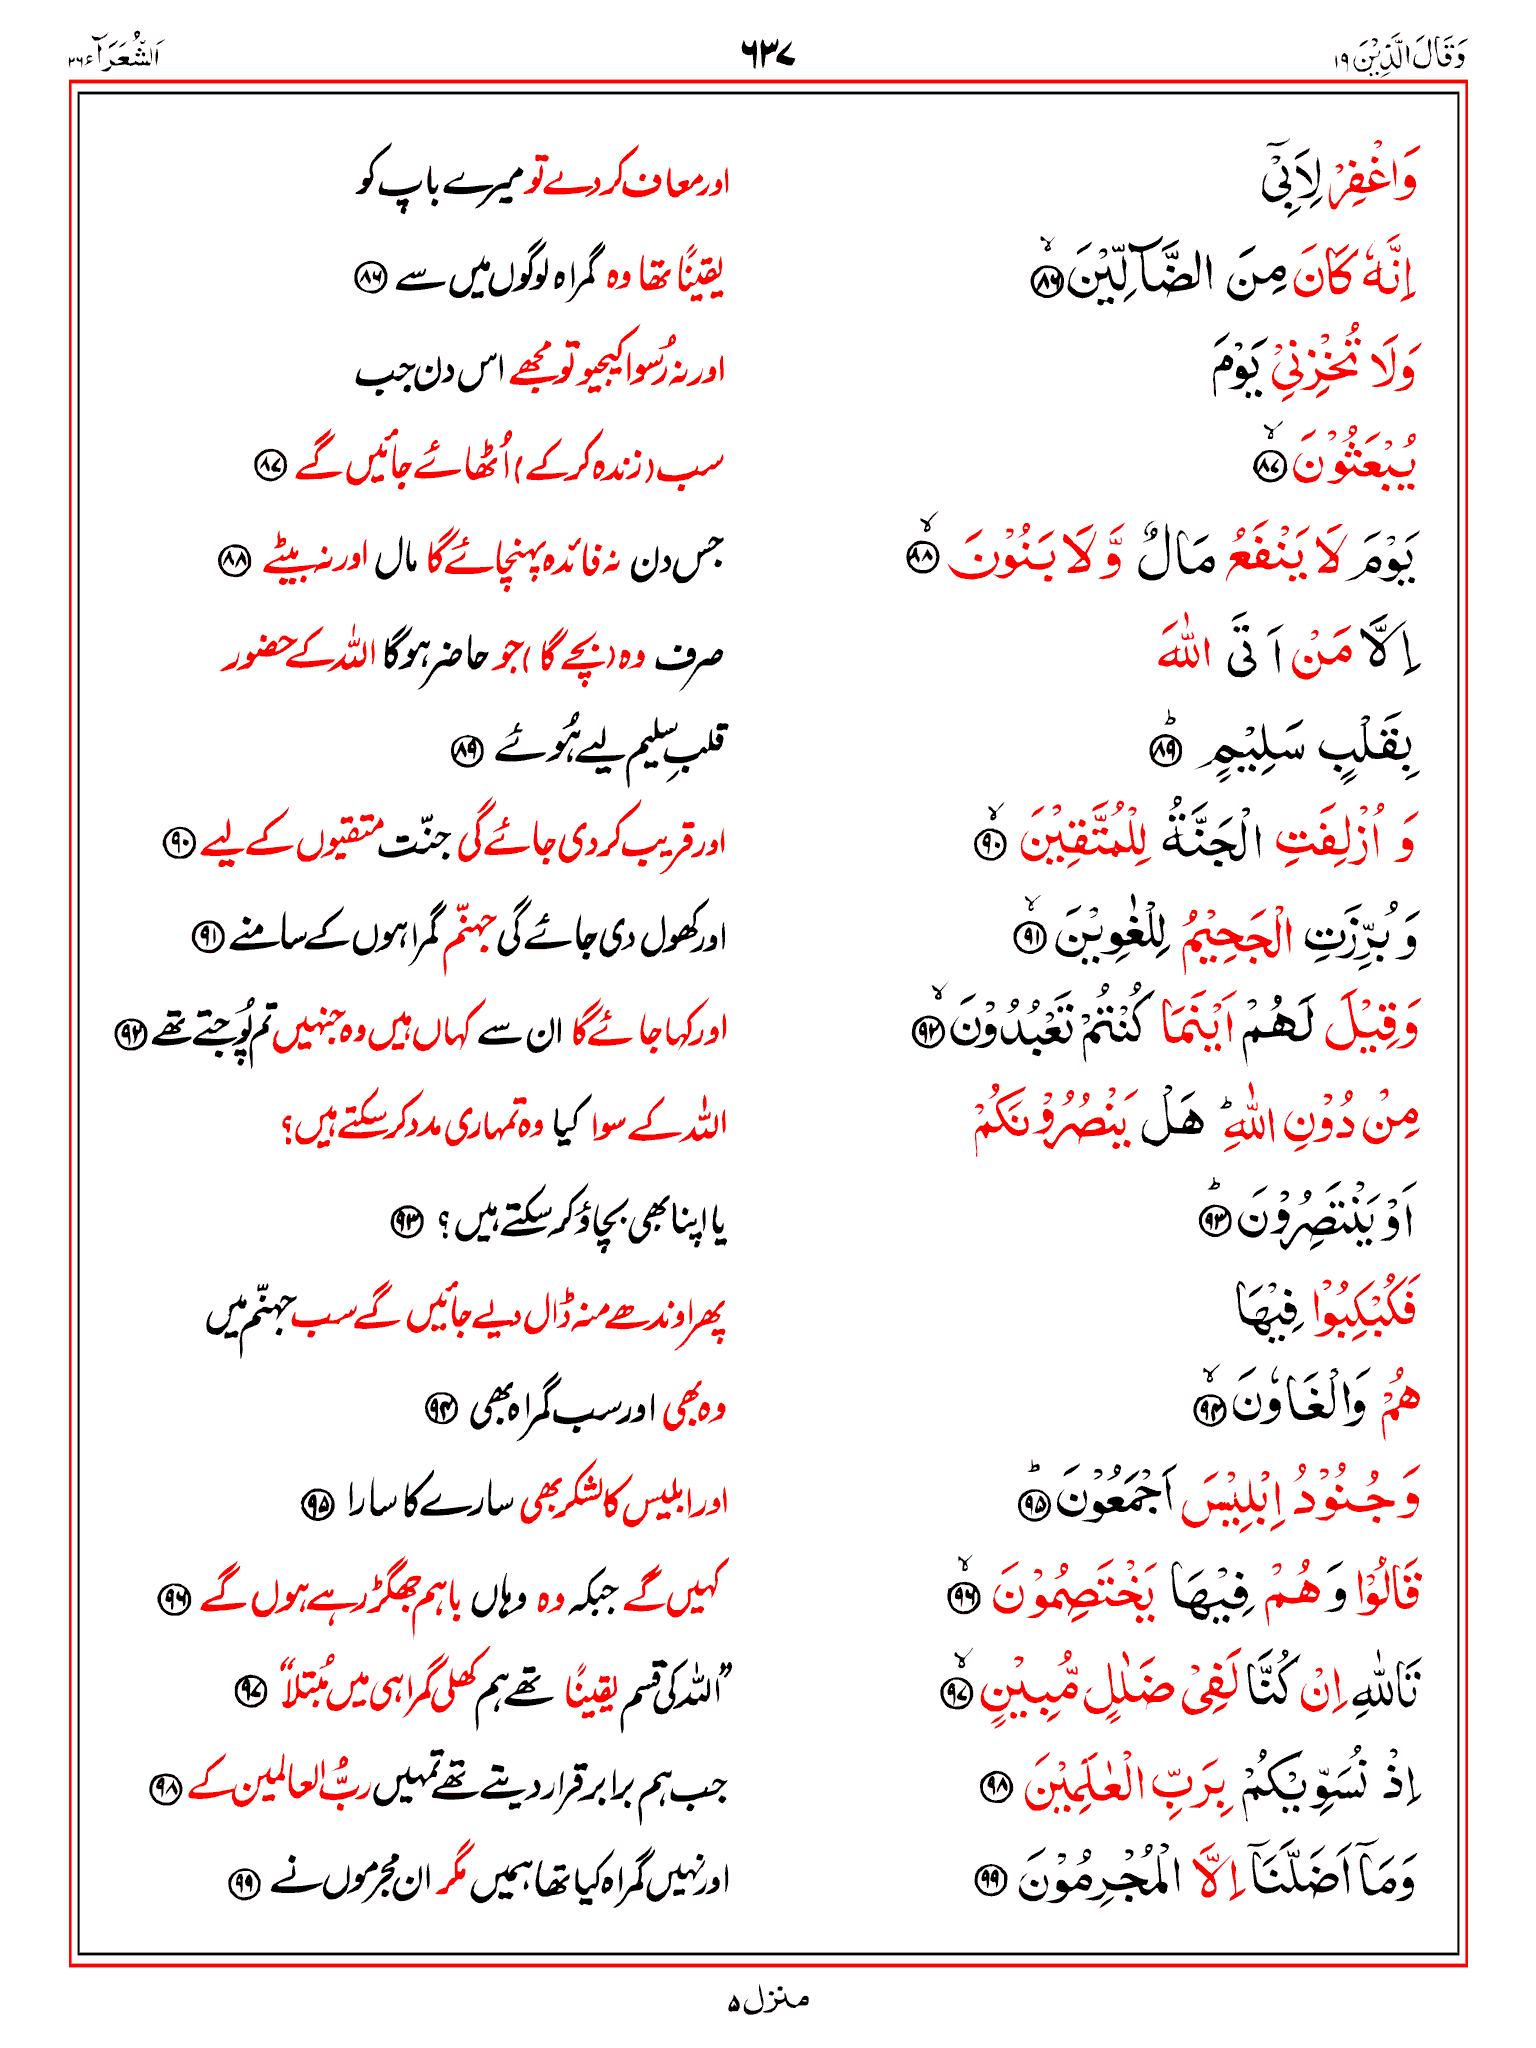 وَقَالَ الَّذِيْنَ ١٩ ٦٣٧ اَلشُّعَرَآء ٢٦
وَاغْفِرْ لِاَبِيْٓ اور معاف کر دے تو میرے باپ کو
اِنَّهٗ كَانَ مِنَ الضَّآلِّيْنَ ۙ﴿٨٦﴾ یقینًا تھا وہ گمراہ لوگوں میں سے ﴿٨٦﴾
وَلَا تُخْزِنِيْ يَوْمَ اور نہ رُسوا کیجیو تو مجھے اس دن جب
يُبْعَثُوْنَ ۙ﴿٨٧﴾ سب (زندہ کر کے) اُٹھائے جائیں گے ﴿٨٧﴾
يَوْمَ لَا يَنْفَعُ مَالٌ وَّلَا بَنُوْنَ ۙ﴿٨٨﴾ جس دن نہ فائدہ پہنچائے گا مال اور نہ بیٹے ﴿٨٨﴾
اِلَّا مَنْ اَتَى اللّٰهَ صرف وہ (بچے گا) جو حاضر ہوگا اللہ کے حضور
بِقَلْبٍ سَلِيْمٍ ؕ﴿٨٩﴾ قلبِ سلیم لیے ہُوئے ﴿٨٩﴾
وَ اُزْلِفَتِ الْجَنَّةُ لِلْمُتَّقِيْنَ ۙ﴿٩٠﴾ اور قریب کر دی جائے گی جنّت متقیوں کے لیے ﴿٩٠﴾
وَ بُرِّزَتِ الْجَحِيْمُ لِلْغٰوِيْنَ ۙ﴿٩١﴾ اور کھول دی جائے گی جہنّم گمراہوں کے سامنے ﴿٩١﴾
وَقِيْلَ لَهُمْ اَيْنَمَا كُنْتُمْ تَعْبُدُوْنَ ۙ﴿٩٢﴾ اور کہا جائے گا ان سے کہاں ہیں وہ جنہیں تم پُوجتے تھے ﴿٩٢﴾
مِنْ دُوْنِ اللّٰهِ ؕ هَلْ يَنْصُرُوْنَكُمْ اللہ کے سوا کیا وہ تمہاری مدد کر سکتے ہیں؟
اَوْ يَنْتَصِرُوْنَ ؕ﴿٩٣﴾ یا اپنا بھی بچاؤ کر سکتے ہیں؟ ﴿٩٣﴾
فَكُبْكِبُوْا فِيْهَا پھر اوندھے منہ ڈال دیے جائیں گے سب جہنّم میں
هُمْ وَالْغَاوٗنَ ۙ﴿٩٤﴾ وہ بھی اور سب گمراہ بھی ﴿٩٤﴾
وَجُنُوْدُ اِبْلِيْسَ اَجْمَعُوْنَ ؕ﴿٩٥﴾ اور ابلیس کا لشکر بھی سارے کا سارا ﴿٩٥﴾
قَالُوْا وَهُمْ فِيْهَا يَخْتَصِمُوْنَ ۙ﴿٩٦﴾ کہیں گے جبکہ وہ وہاں باہم جھگڑ رہے ہوں گے ﴿٩٦﴾
تَاللّٰهِ اِنْ كُنَّا لَفِيْ ضَلٰلٍ مُّبِيْنٍ ۙ﴿٩٧﴾ ”اللہ کی قسم یقینًا تھے ہم کھلی گمراہی میں مُبتلا“ ﴿٩٧﴾
اِذْ نُسَوِّيْكُمْ بِرَبِّ الْعٰلَمِيْنَ ﴿٩٨﴾ جب ہم برابر قرار دیتے تھے تمہیں ربُّ العالمین کے ﴿٩٨﴾
وَمَآ اَضَلَّنَآ اِلَّا الْمُجْرِمُوْنَ ﴿٩٩﴾ اور نہیں گمراہ کیا تھا ہمیں مگر ان مجرموں نے ﴿٩٩﴾
منزل ۵